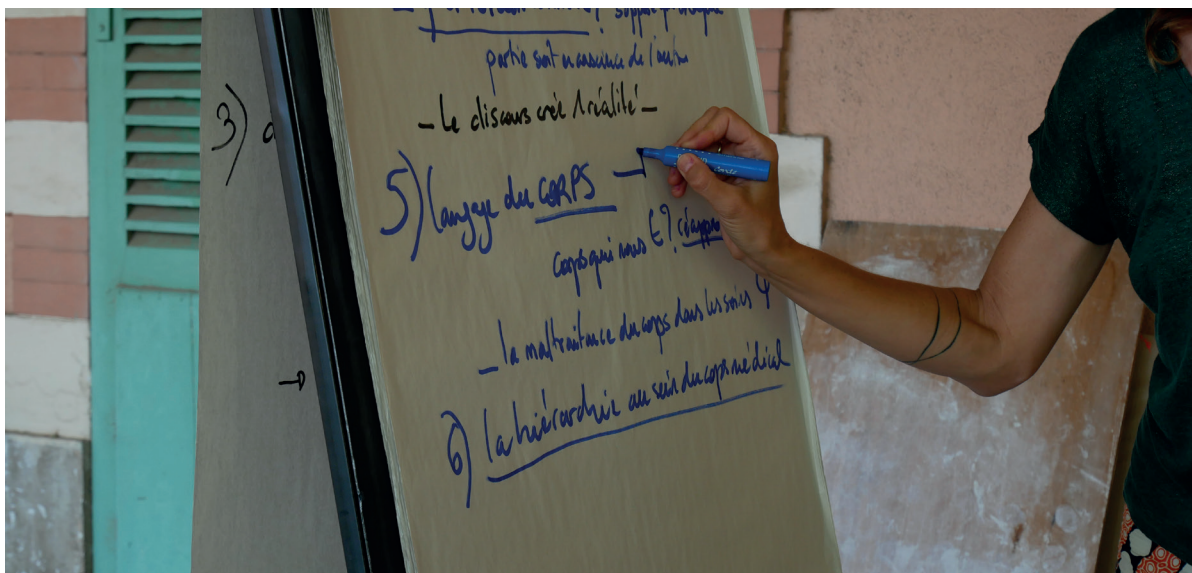 3)
partie soit
de l'autre
– Le discours crée 1 réalité –
5) langage du CORPS –
corps qui nous € ?
– la maltraitance du corps dans les soins Ψ
6) la hiérarchie au sein du corps médical